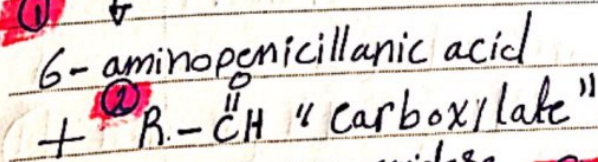 ①
6- aminopenicillanic acid
② O
+ R - CH "carboxylate"